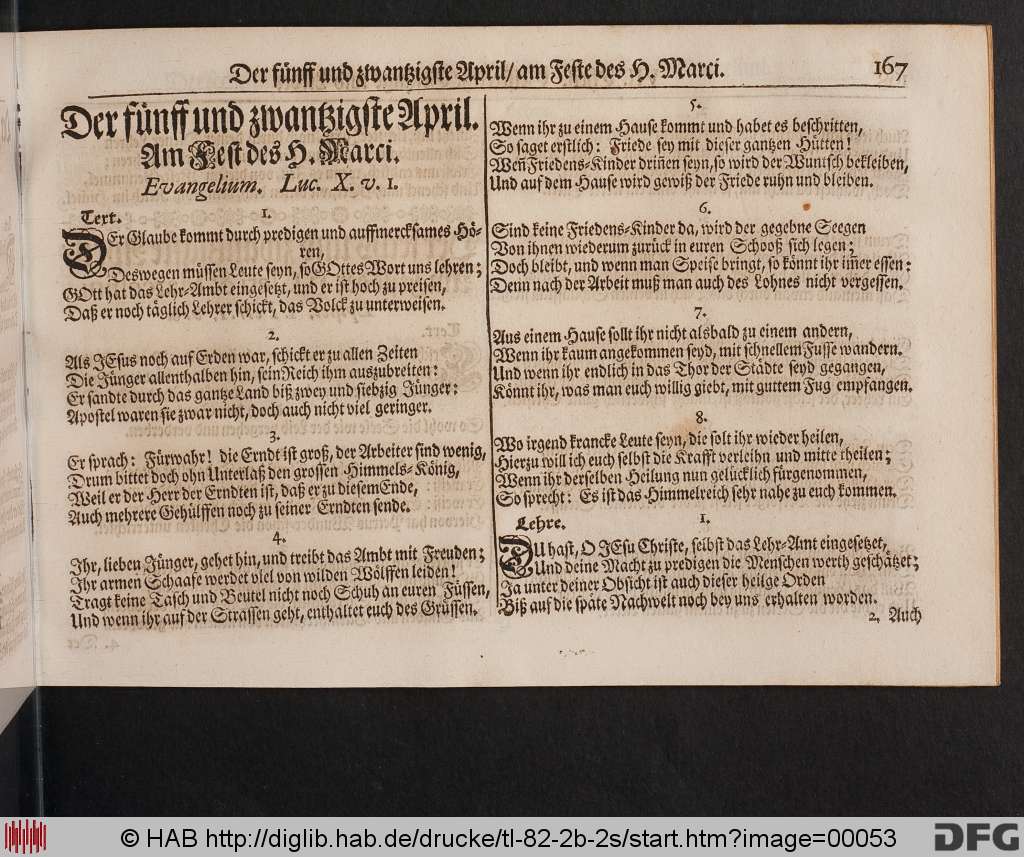 Der fünff und zwantzigste April/ am Feste des H. Marci. 167
Der fünff und zwantzigste April.
Am Fest des H. Marci.
Evangelium. Luc. X. v. 1.
Text. 1.
DEr Glaube kommt durch predigen und auffmercksames Hö-
ren,
Deswegen müssen Leute seyn, so GOttes Wort uns lehren;
GOtt hat das Lehr-Ambt eingesetzt, und er ist hoch zu preisen,
Daß er noch täglich Lehrer schickt, das Volck zu unterweisen.
2.
Als JEsus noch auf Erden war, schickt er zu allen Zeiten
Die Jünger allenthalben hin, sein Reich ihm auszubreiten:
Er sandte durch das gantze Land biß zwey und siebzig Jünger:
Apostel waren sie zwar nicht, doch auch nicht viel geringer.
3.
Er sprach: Fürwahr! die Erndt ist groß, der Arbeiter sind wenig,
Drum bittet doch ohn Unterlaß den grossen Himmels-König,
Weil er der Herr der Erndten ist, daß er zu diesem Ende,
Auch mehrere Gehülffen noch zu seiner Erndten sende.
4.
Ihr, lieben Jünger, gehet hin, und treibt das Ambt mit Freuden;
Ihr armen Schaafe werdet viel von wilden Wölffen leiden!
Tragt keine Tasch und Beutel nicht noch Schuh an euren Füssen,
Und wenn ihr auf der Strassen geht, enthaltet euch des Grüssen.
5.
Wenn ihr zu einem Hause kommt und habet es beschritten,
So saget erstlich: Friede sey mit dieser gantzen Hütten!
Weñ Friedens-Kinder driñen seyn, so wird der Wuntsch bekleiben,
Und auf dem Hause wird gewiß der Friede ruhn und bleiben.
6.
Sind keine Friedens-Kinder da, wird der gegebne Seegen
Von ihnen wiederum zurück in euren Schooß sich legen;
Doch bleibt, und wenn man Speise bringt, so könnt ihr im̃er essen:
Denn nach der Arbeit muß man auch des Lohnes nicht vergessen.
7.
Aus einem Hause sollt ihr nicht alsbald zu einem andern,
Wenn ihr kaum angekommen seyd, mit schnellem Fusse wandern.
Und wenn ihr endlich in das Thor der Städte seyd gegangen,
Könnt ihr, was man euch willig giebt, mit guttem Fug empfangen.
8.
Wo irgend krancke Leute seyn, die solt ihr wieder heilen,
Hierzu will ich euch selbst die Krafft verleihn und mitte theilen;
Wenn ihr derselben Heilung nun gelücklich fürgenommen,
So sprecht: Es ist das Himmelreich sehr nahe zu euch kommen.
Lehre. 1.
DU hast, O JEsu Christe, selbst das Lehr-Amt eingesetzet,
Und deine Macht zu predigen die Menschen werth geschätzet;
Ja unter deiner Obsicht ist auch dieser heilge Orden
Biß auf die späte Nachwelt noch bey uns erhalten worden.
2. Auch
© HAB http://diglib.hab.de/drucke/tl-82-2b-2s/start.htm?image=00053
DFG